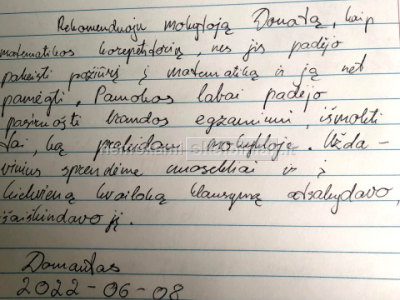 Rekomenduoju mokytoją Donatą, kaip
matematikos korepetitorių, nes jis padėjo
pakeisti požiūrį į matematiką ir ją net
pamėgti. Pamokos labai padėjo
pasiruošti brandos egzaminui, išmokti
tai, ką praleidau mokykloje. Užda-
vinius sprendėme nuosekliai ir į
kiekvieną kvailoką klausymą atsakydavo,
išaiškindavo jį.
Domantas
2022-06-08